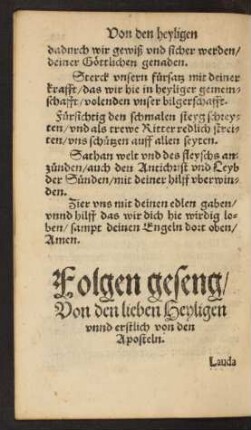 Von den heyligen
dadurch wir gewiß vnd sicher werden/
deiner Göttlichen genaden.
Sterck vnsern fürsatz mit deiner
krafft/das wir hie in heyliger gemein-
schafft/volenden vnser bilgerschafft.
Fürsichtig den schmalen steyg schrey-
ten/vnd als trewe Ritter redlich strei-
ten/vns schützen auff allen seyten.
Sathan welt vnd des fleyschs an-
zünden/auch den Antichrist vnd Leyb
der Sünden/mit deiner hilff vberwin-
den.
Zier vns mit deinen edlen gaben/
vnnd hilff das wir dich hie wirdig lo-
ben/sampt deinen Engeln dort oben/
Amen.
Folgen geseng/
Von den lieben Heyligen
vnnd erstlich von den
Aposteln.
Lauda